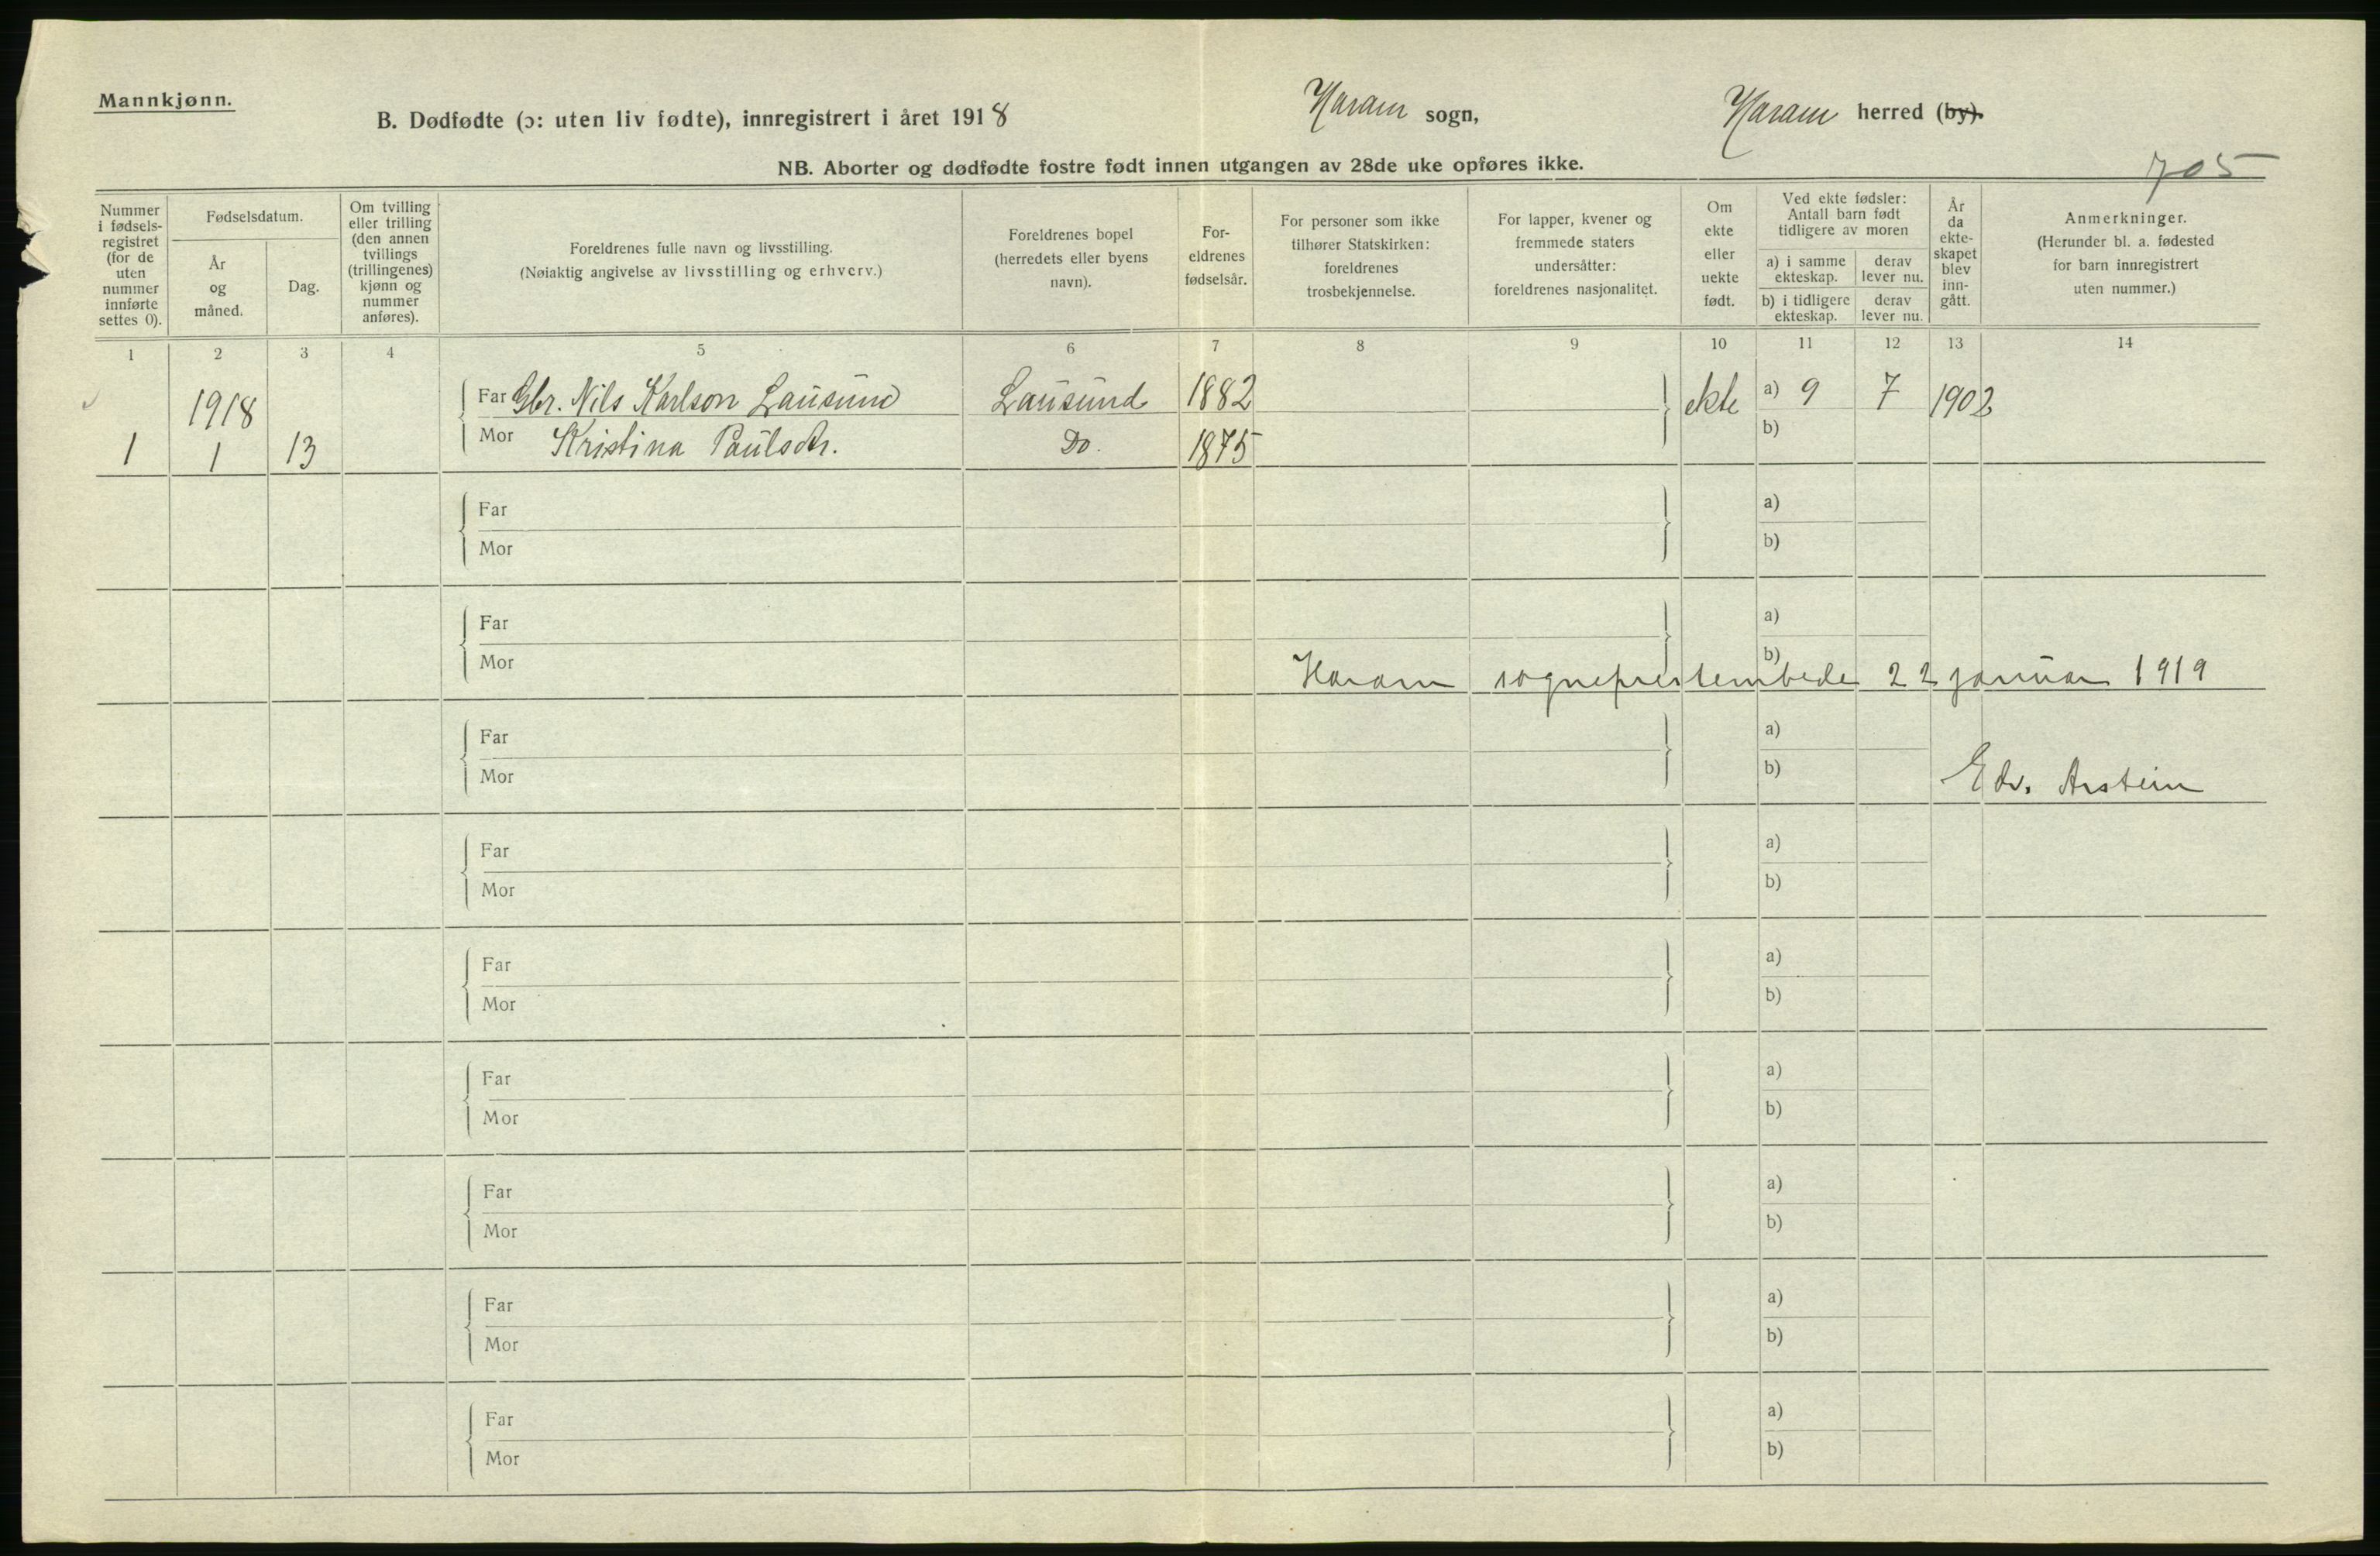 Mannkjønn.
B. Dødfødte (ɔ: uten liv fødte), innregistrert i året 1918 Haram sogn, Haram herred (by).
NB. Aborter og dødfødte fostre født innen utgangen av 28de uke opføres ikke.
705
Nummer i fødsels-registret (for de uten nummer innførte settes 0).
Fødselsdatum.
År og måned.
Dag.
Om tvilling eller trilling (den annen tvillings (trillingenes) kjønn og nummer anføres).
Foreldrenes fulle navn og livsstilling.
(Nøiaktig angivelse av livsstilling og erhverv.)
Foreldrenes bopel (herredets eller byens navn).
For-eldrenes fødselsår.
For personer som ikke tilhører Statskirken: foreldrenes trosbekjennelse.
For lapper, kvener og fremmede staters undersåtter: foreldrenes nasjonalitet.
Om ekte eller uekte født.
Ved ekte fødsler: Antall barn født tidligere av moren
a) i samme ekteskap.
derav lever nu.
b) i tidligere ekteskap.
derav lever nu.
År da ekte-skapet blev inn-gått.
Anmerkninger.
(Herunder bl. a. fødested for barn innregistrert uten nummer.)
1 2 3 4 5 6 7 8 9 10 11 12 13 14
1918
Far Gbr. Nils Karlson Lausund Lausund 1882 ekte a) 9 7 1902
1 1 13 Mor Kristina Paulsdtr. Do. 1875 b)
Far a)
Mor b)
Far a)
Mor b)
Haram sogneprestembede 22 januar 1919
Far a)
Mor b)
Edv. Arstein
Far a)
Mor b)
Far a)
Mor b)
Far a)
Mor b)
Far a)
Mor b)
Far a)
Mor b)
Far a)
Mor b)